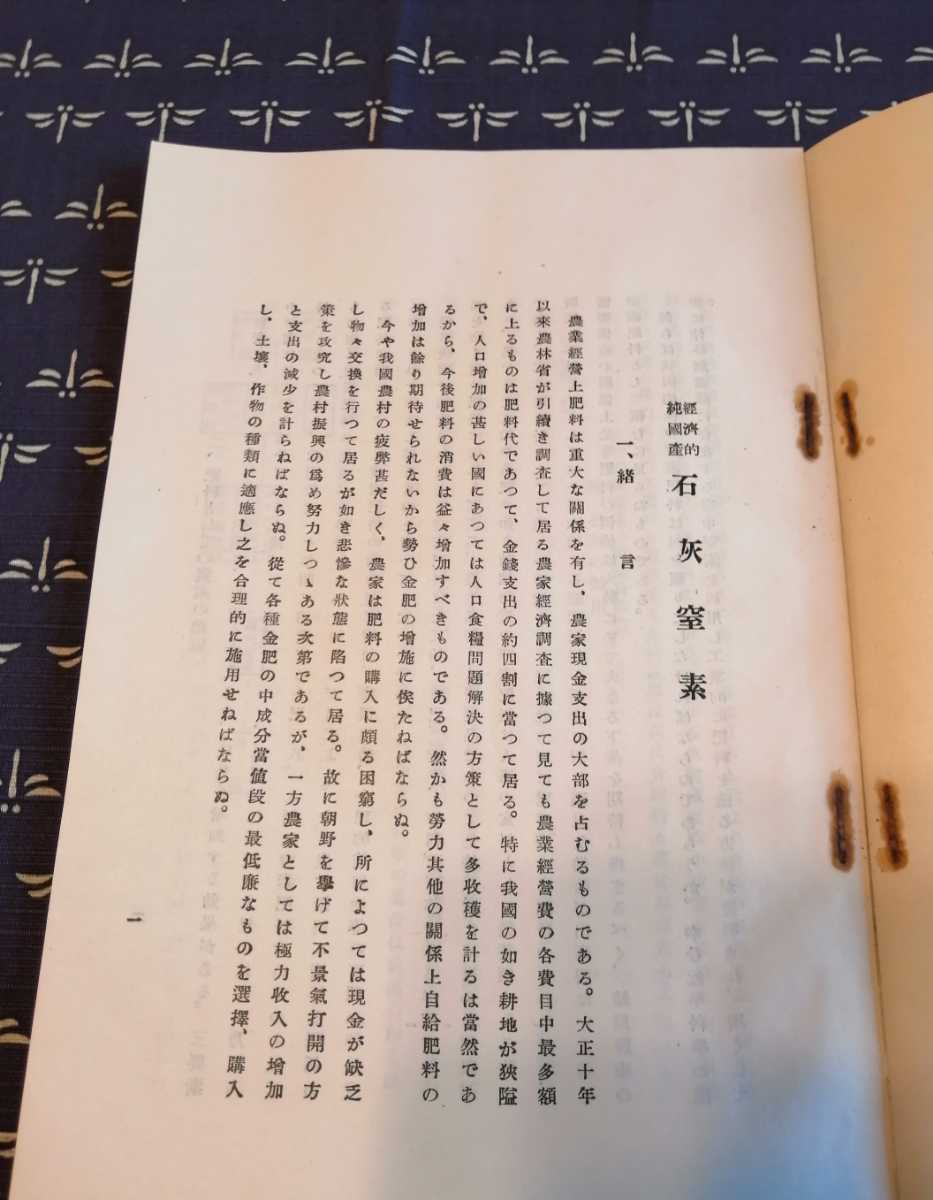 經濟的
純國產
石灰窒素
一、緒言
農業經營上肥料は重大な關係を有し、農家現金支出の大部を占むるものである。大正十年
以來農林省が引續き調査して居る農家經濟調査に據つて見ても農業經營費の各費目中最多額
に上るものは肥料代であつて、金錢支出の約四割に當つて居る。特に我國の如き耕地が狹隘
で、人口增加の甚しい國にあつては人口食糧問題解決の方策として多收穫を計るは當然であ
るから、今後肥料の消費は益々增加すべきものである。然かも勞力其他の關係上自給肥料の
增加は餘り期待せられないから勢ひ金肥の增施に俟たねばならぬ。
今や我國農村の疲弊甚だしく、農家は肥料の購入に頗る困窮し、所によつては現金が缺乏
し物々交換を行つて居るが如き悲慘な狀態に陷つて居る。故に朝野を擧げて不景氣打開の方
策を攻究し農村振興の爲め努力しつゝある次第であるが、一方農家としては極力收入の增加
と支出の減少を計らねばならぬ。從て各種金肥の中成分當値段の最低廉なものを選擇、購入
し、土壤、作物の種類に適應し之を合理的に施用せねばならぬ。
一